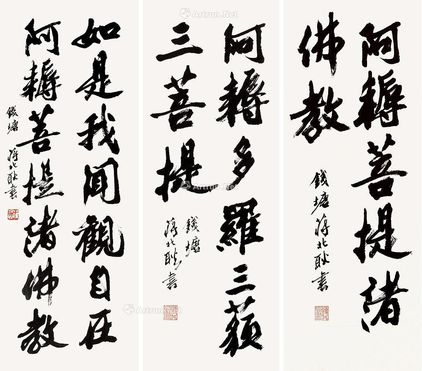 阿耨菩提諸
佛教
錢塘蔣北耿書
阿耨多羅三藐
三菩提
錢塘
蔣北耿書
如是我聞觀自在
阿耨菩提諸佛教
錢塘
蔣北耿書
Artron.Net